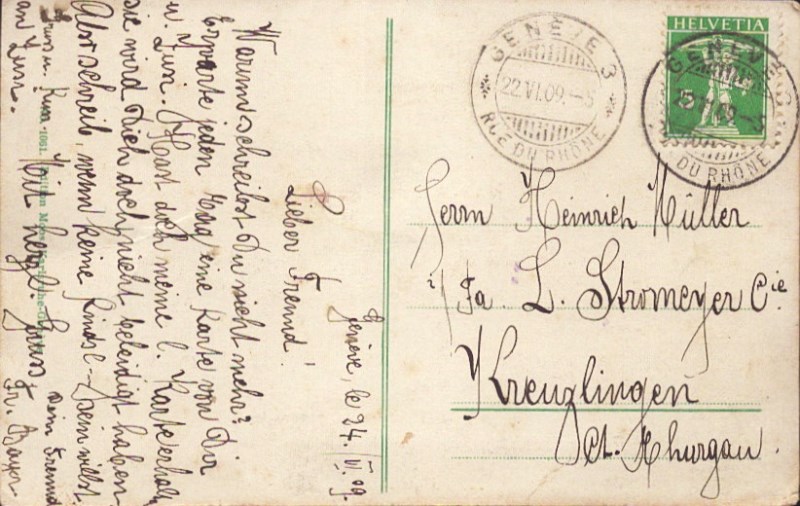 HELVETIA
5
GENÈVE 3
22.VI.09.-5
RUE DU RHÔNE
GENÈVE 3
22.VI.09.-5
RUE DU RHÔNE
Herrn Heinrich Müller
i/ Fa. L. Stromeyer Cie
Kreuzlingen
Ct. Thurgau.
Genève, le 24. VI. 09.
Lieber Freund!
Warum schreibst Du nicht mehr?
Erwarte jeden Tag eine Karte von Dir
u. Luis. Hast doch meine l. Karte erhalt.
sie wird Dich doch nicht beleidigt haben
Aber schreib, wenn keine Rindsl- sein willst.
Gruss u. Kuss
an Luis. Mit herzl. Gruss
Dein Freund
Fr. Bayer